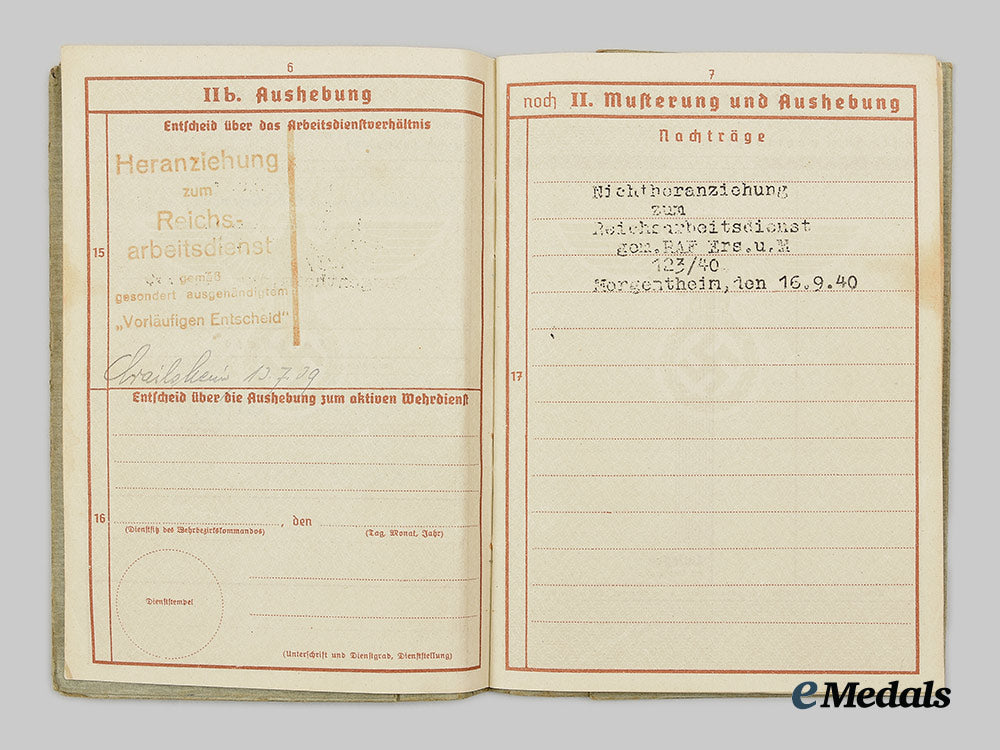 6
IIb. Aushebung
Entscheid über das Arbeitsdienstverhältnis
Heranziehung
zum
Reichs-
arbeitsdienst
15
gemäß
gesondert ausgehändigtem
„Vorläufigen Entscheid"
Crailsheim 13.7.39
Entscheid über die Aushebung zum aktiven Wehrdienst
16
, den
(Dienstsitz des Wehrbezirkskommandos)
(Tag, Monat, Jahr)
Dienststempel
(Unterschrift und Dienstgrad, Dienststellung)
7
noch II. Musterung und Aushebung
Nachträge
Nichtheranziehung
zum
Reichsarbeitsdienst
gem.RAF Ers.u.M
123/40
Mergentheim,den 16.9.40
17
eMedals